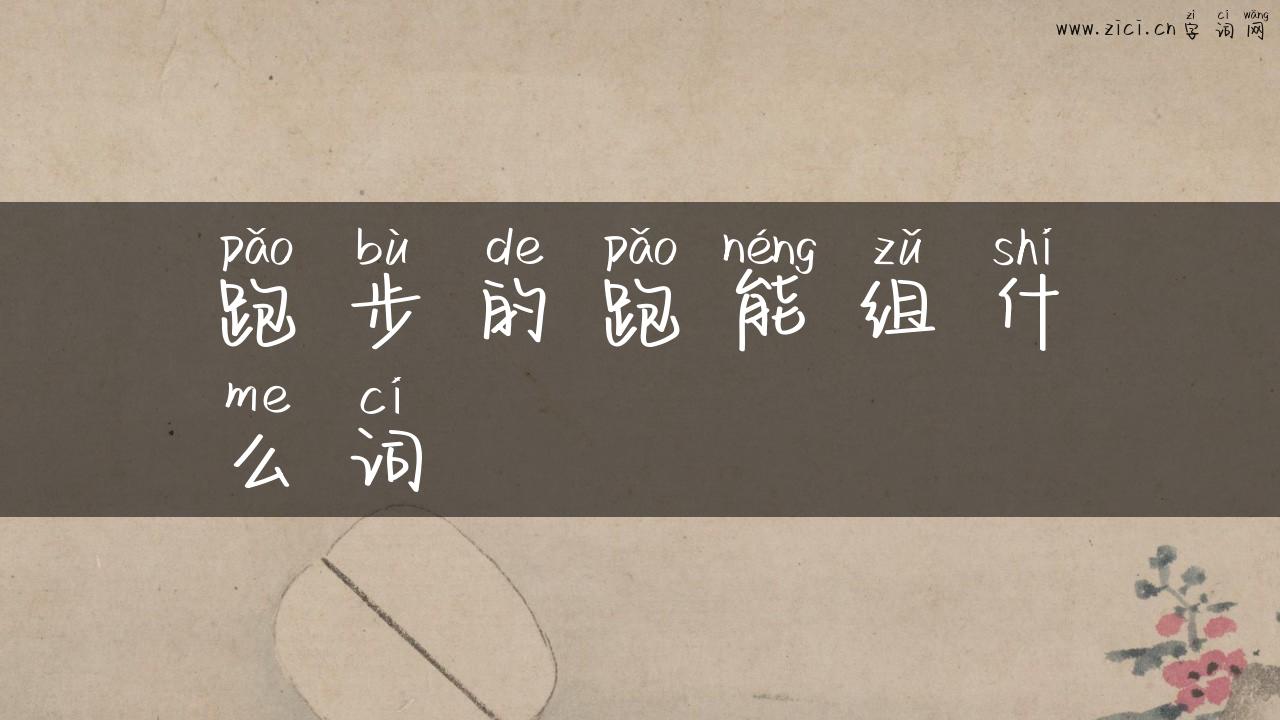 zì cí wǎng
www.zici.cn 字词网
pǎo bù de pǎo néng zǔ shí
跑步的跑能组什
me cí
么词